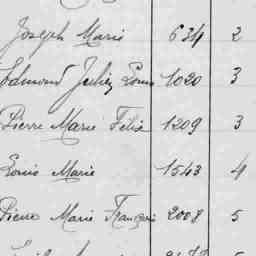 Joseph Marie 634 2
Edmond Julien Louis 1020 3
Pierre Marie Félix 1209 3
Louis Marie 1543 4
Pierre Marie François 2008 5